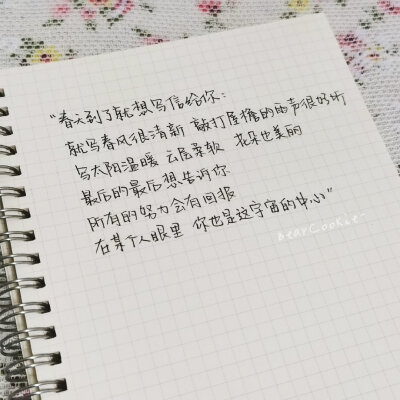 “春天到了就想写信给你：
就写春风很清新 敲打屋檐的雨声很好听
写太阳温暖 云层柔软 花朵也美丽
最后的最后想告诉你
所有的努力会有回报
在某个人眼里 你也是这宇宙的中心”
BearCookie-